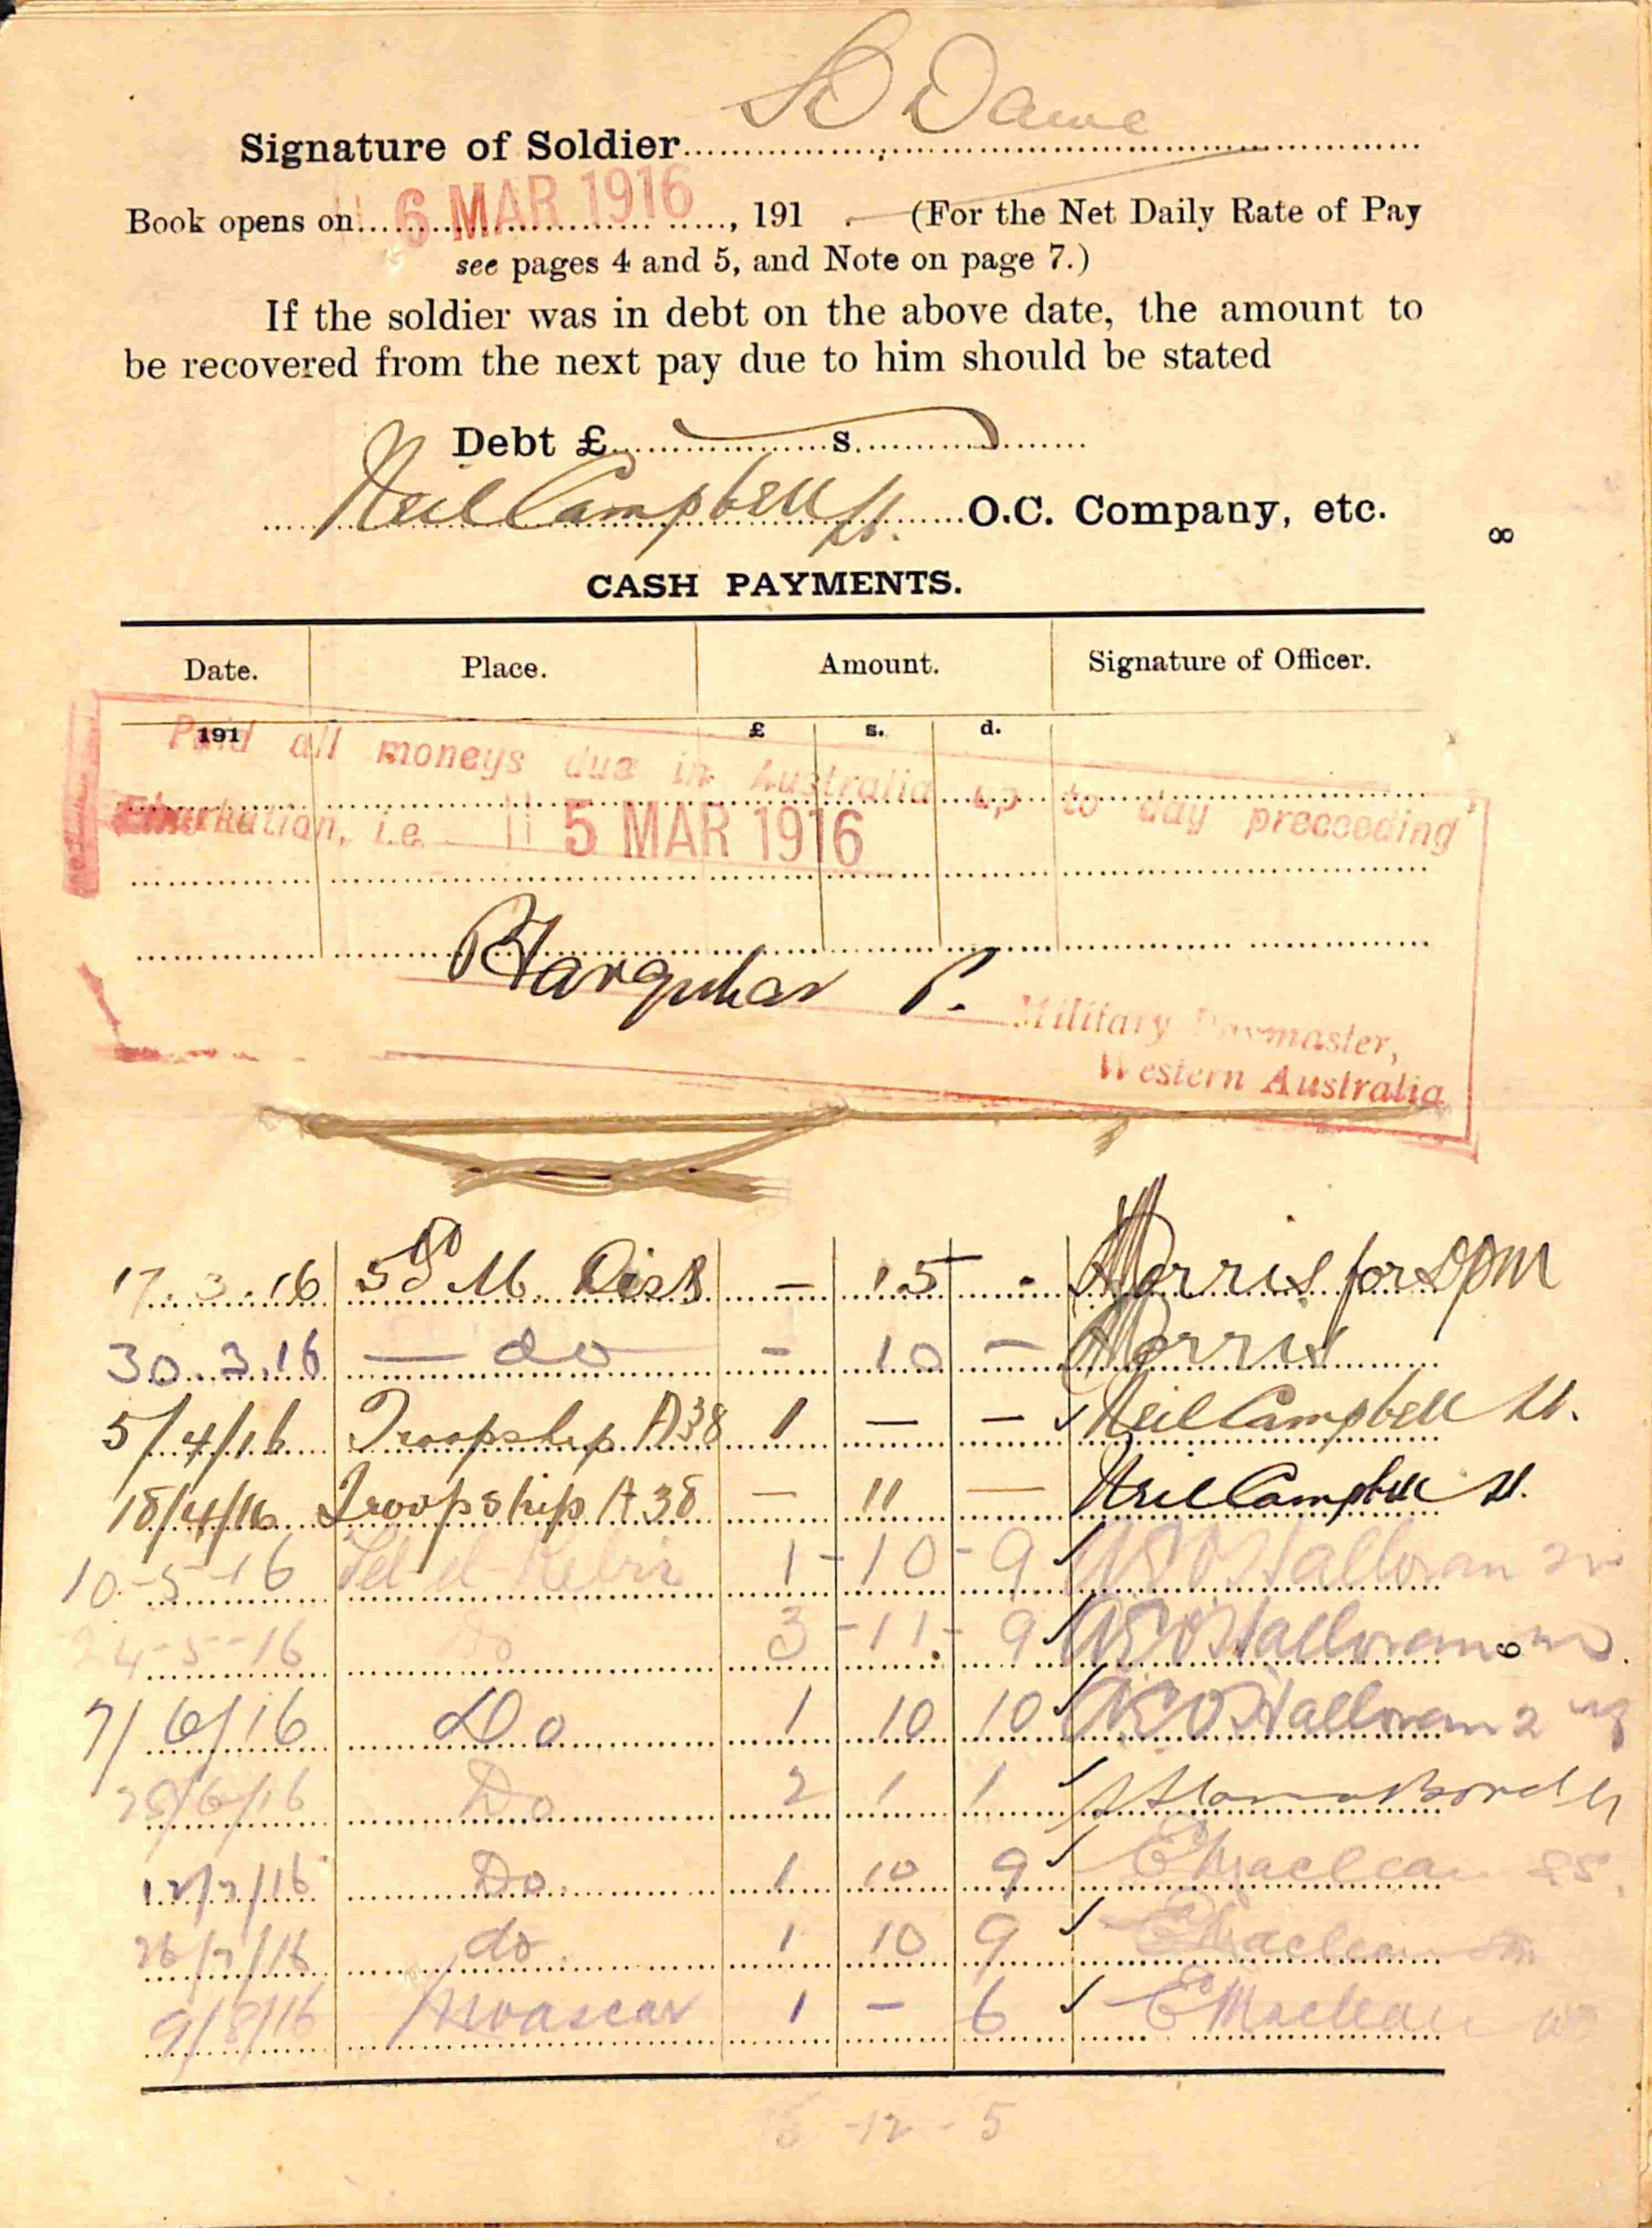 S D Dawe
Signature of Soldier
Book opens on 6 MAR 1916, 191 . (For the Net Daily Rate of Pay
see pages 4 and 5, and Note on page 7.)
If the soldier was in debt on the above date, the amount to
be recovered from the next pay due to him should be stated
Debt £ s.
Neil Campbell Lt. O.C. Company, etc.
8
CASH PAYMENTS.
Date. Place. Amount. Signature of Officer.
191 £ s. d.
Paid all moneys due in Australia up to day preceeding
Embarkation, i.e. 5 MAR 1916
Farquhar
Military Paymaster,
Western Australia
17.3.16 5th M. Dist - 15 - Morris for DPM
30.3.16 — do — - 10 - Morris
5/4/16 Troopship A38 1 - - Neil Campbell Lt.
18/4/16 Troopship A38 - 11 - Neil Campbell Lt.
10-5-16 Tel el-Kebir 1-10-9 O'Halloran
24-5-16 Do 3-11-9 O'Halloran
9
7/6/16 Do 1 10 10 O'Halloran 2
28/6/16 Do 2 1 1
12/7/16 Do. 1 10 9 E Maclean
26/7/16 do. 1 10 9 E Maclean
9/8/16 Moascar 1 - 6 E Maclean
-12-5